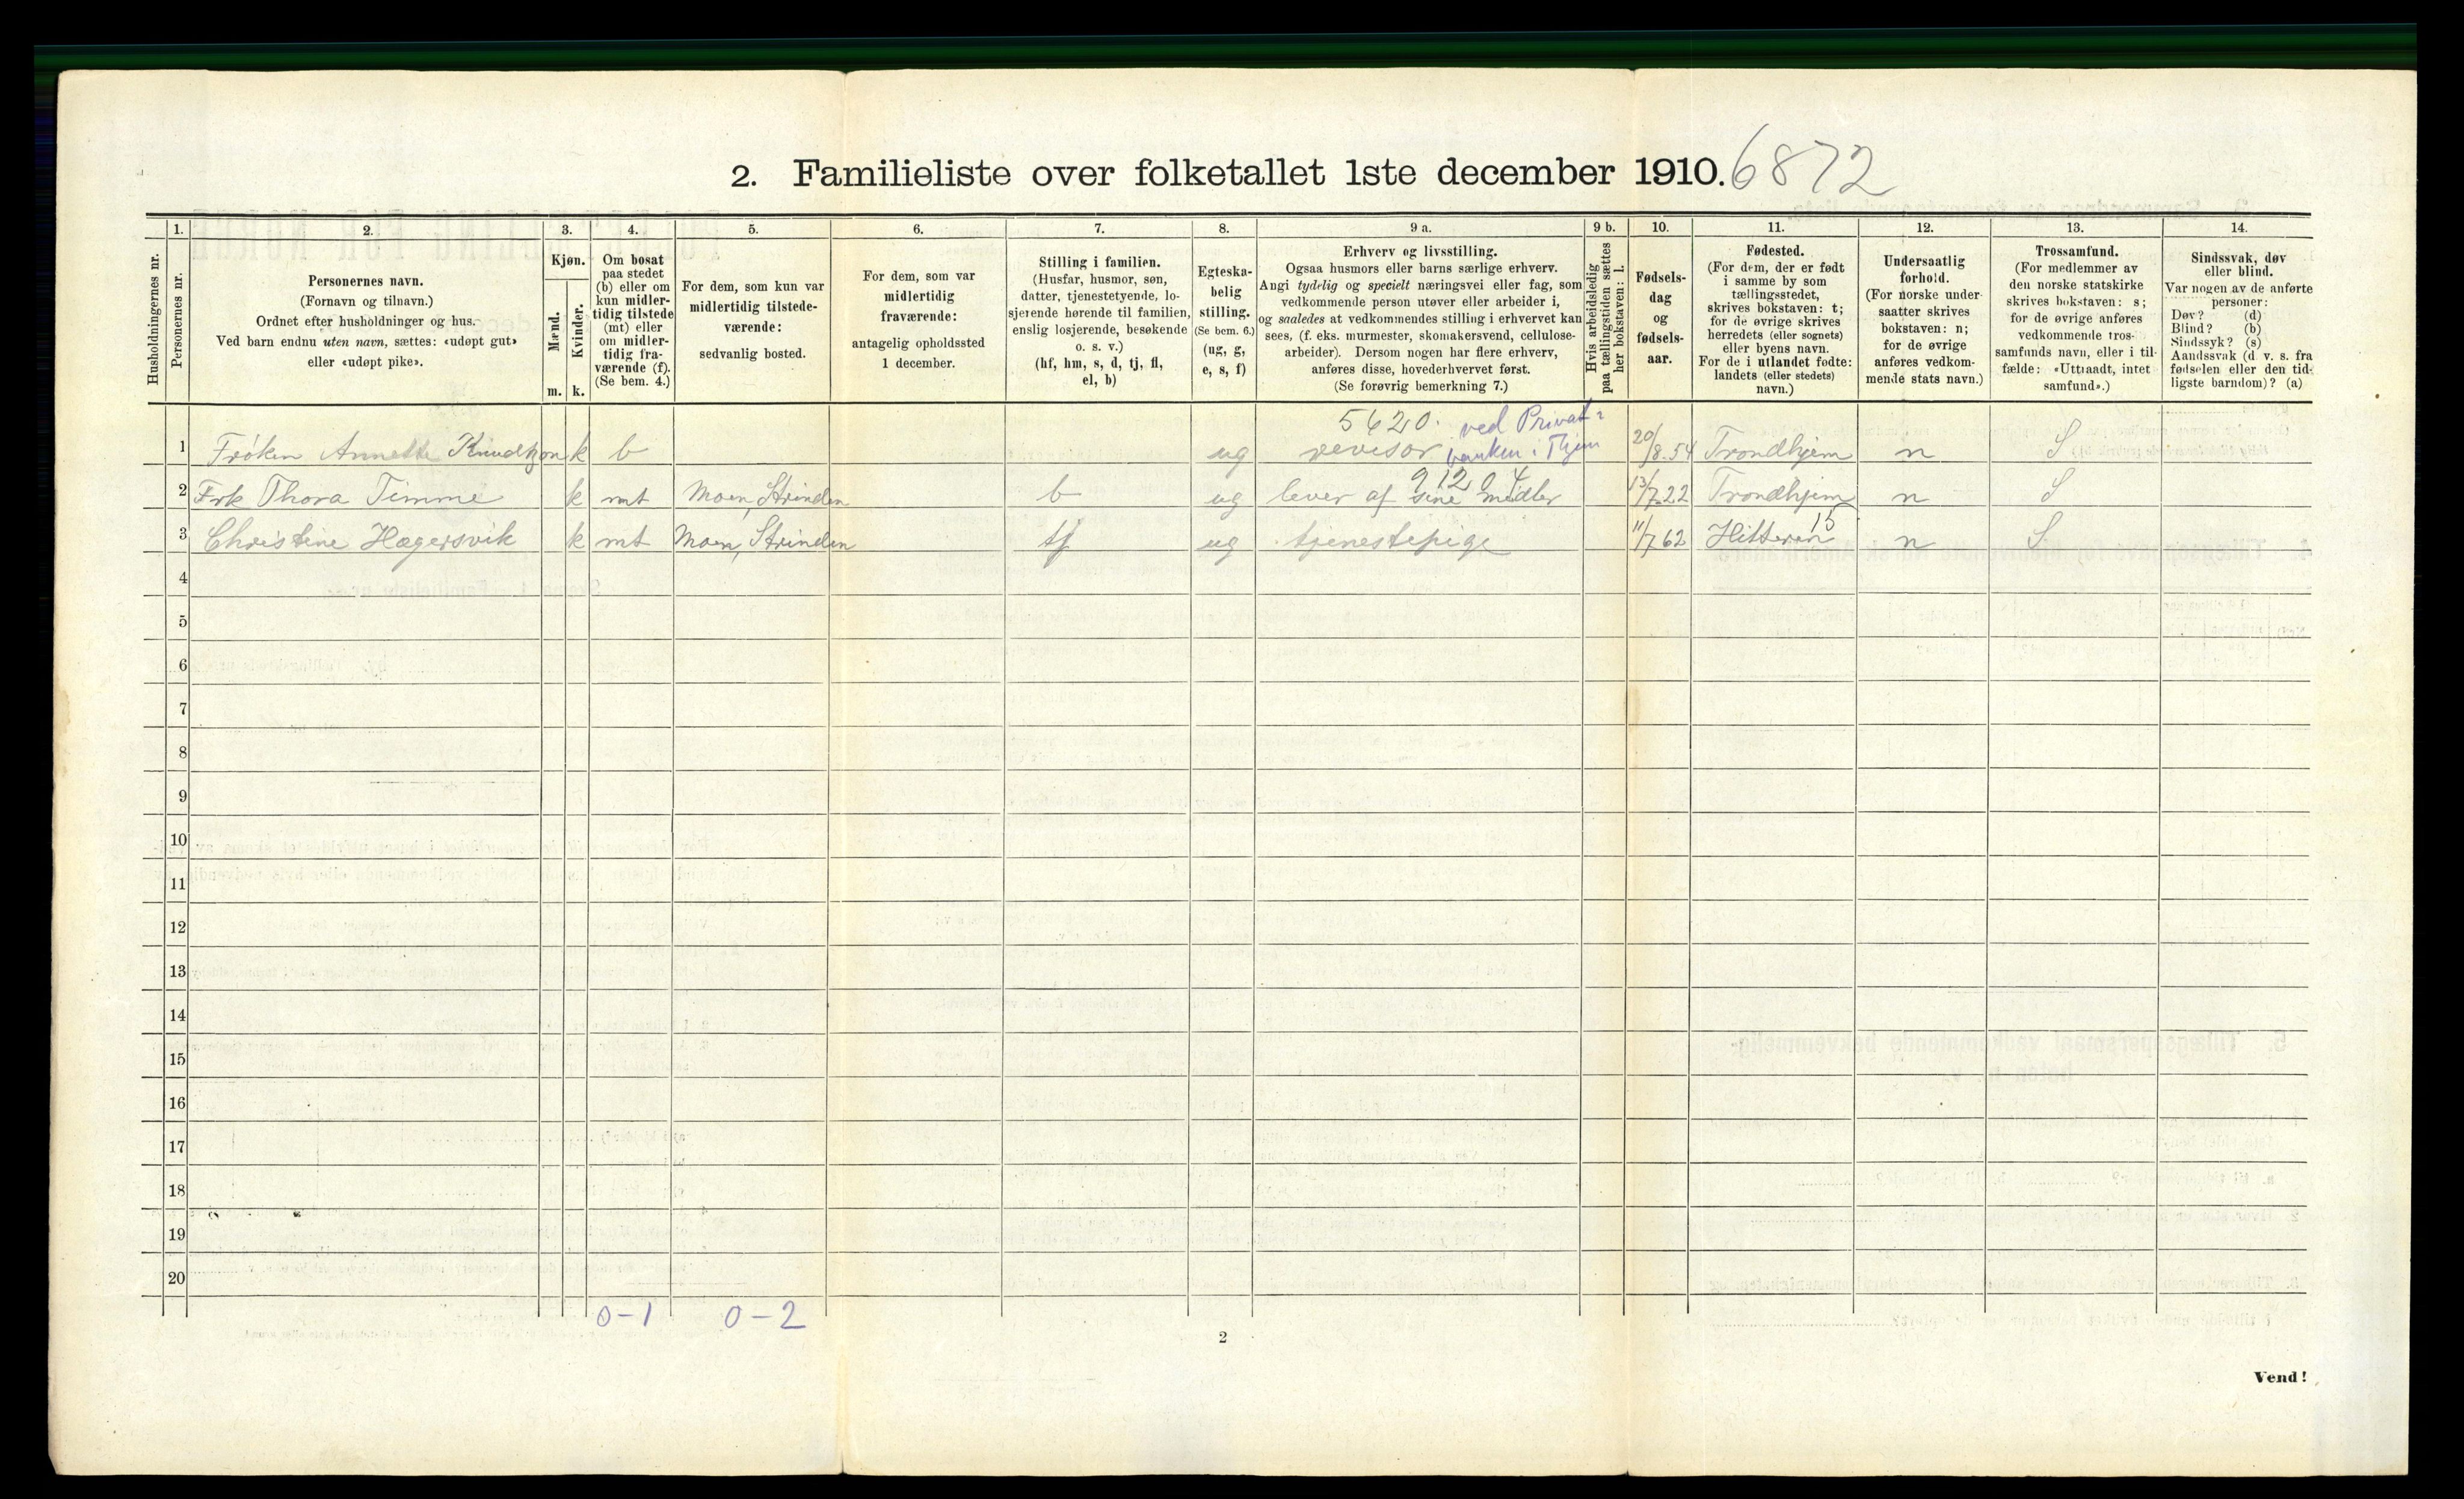 2. Familieliste over folketallet 1ste december 1910. 6872
Husholdningernes nr.
1.
Personernes nr.
2.
Personernes navn.
(Fornavn og tilnavn.)
Ordnet efter husholdninger og hus.
Ved barn endnu uten navn, sættes: «udøpt gut»
eller «udøpt pike».
3.
Kjøn.
Mænd.
Kvinder.
m. k.
4.
Om bosat
paa stedet
(b) eller om
kun midler-
tidig tilstede
(mt) eller
om midler-
tidig fra-
værende (f).
(Se bem. 4.)
5.
For dem, som kun var
midlertidig tilstede-
værende:
sedvanlig bosted.
6.
For dem, som var
midlertidig
fraværende:
antagelig opholdssted
1 december.
7.
Stilling i familien.
(Husfar, husmor, søn,
datter, tjenestetyende, lo-
sjerende hørende til familien,
enslig losjerende, besøkende
o. s. v.)
(hf, hm, s, d, tj, fl,
el, b)
8.
Egteska-
belig
stilling.
(Se bem. 6.)
(ug, g,
e, s, f)
9 a.
Erhverv og livsstilling.
Ogsaa husmors eller barns særlige erhverv.
Angi tydelig og specielt næringsvei eller fag, som
vedkommende person utøver eller arbeider i,
og saaledes at vedkommendes stilling i erhvervet kan
sees, (f. eks. murmester, skomakersvend, cellulose-
arbeider). Dersom nogen har flere erhverv,
anføres disse, hovederhvervet først.
(Se forøvrig bemerkning 7.)
9 b.
Hvis arbeidsledig
paa tællingstiden sættes
her bokstaven: l.
10.
Fødsels-
dag
og
fødsels-
aar.
11.
Fødested.
(For dem, der er født
i samme by som
tællingsstedet,
skrives bokstaven: t;
for de øvrige skrives
herredets (eller sognets)
eller byens navn.
For de i utlandet fødte:
landets (eller stedets)
navn.)
12.
Undersaatlig
forhold.
(For norske under-
saatter skrives
bokstaven: n;
for de øvrige
anføres vedkom-
mende stats navn.)
13.
Trossamfund.
(For medlemmer av
den norske statskirke
skrives bokstaven: s;
for de øvrige anføres
vedkommende tros-
samfunds navn, eller i til-
fælde: «Uttraadt, intet
samfund».)
14.
Sindssvak, døv
eller blind.
Var nogen av de anførte
personer:
Døv? (d)
Blind? (b)
Sindssyk? (s)
Aandssvak (d. v. s. fra
fødselen eller den tid-
ligste barndom)? (a)
5620. ved Privat-
1 Frøken Annette Knudtzon k b ug revisor banken i Thjem 20/8.54 Trondhjem n S
91204
2 Frk Thora Timme k mt Moen, Strinden b ug lever af sine midler 13/7.22 Trondhjem n S
15
3 Christine Hægersvik k mt Moen, Strinden tj ug tjenestepige 11/7 62 Hitteren n S
4
5
6
7
8
9
10
11
12
13
14
15
16
17
18
19
20
0-1 0-2
2
Vend!